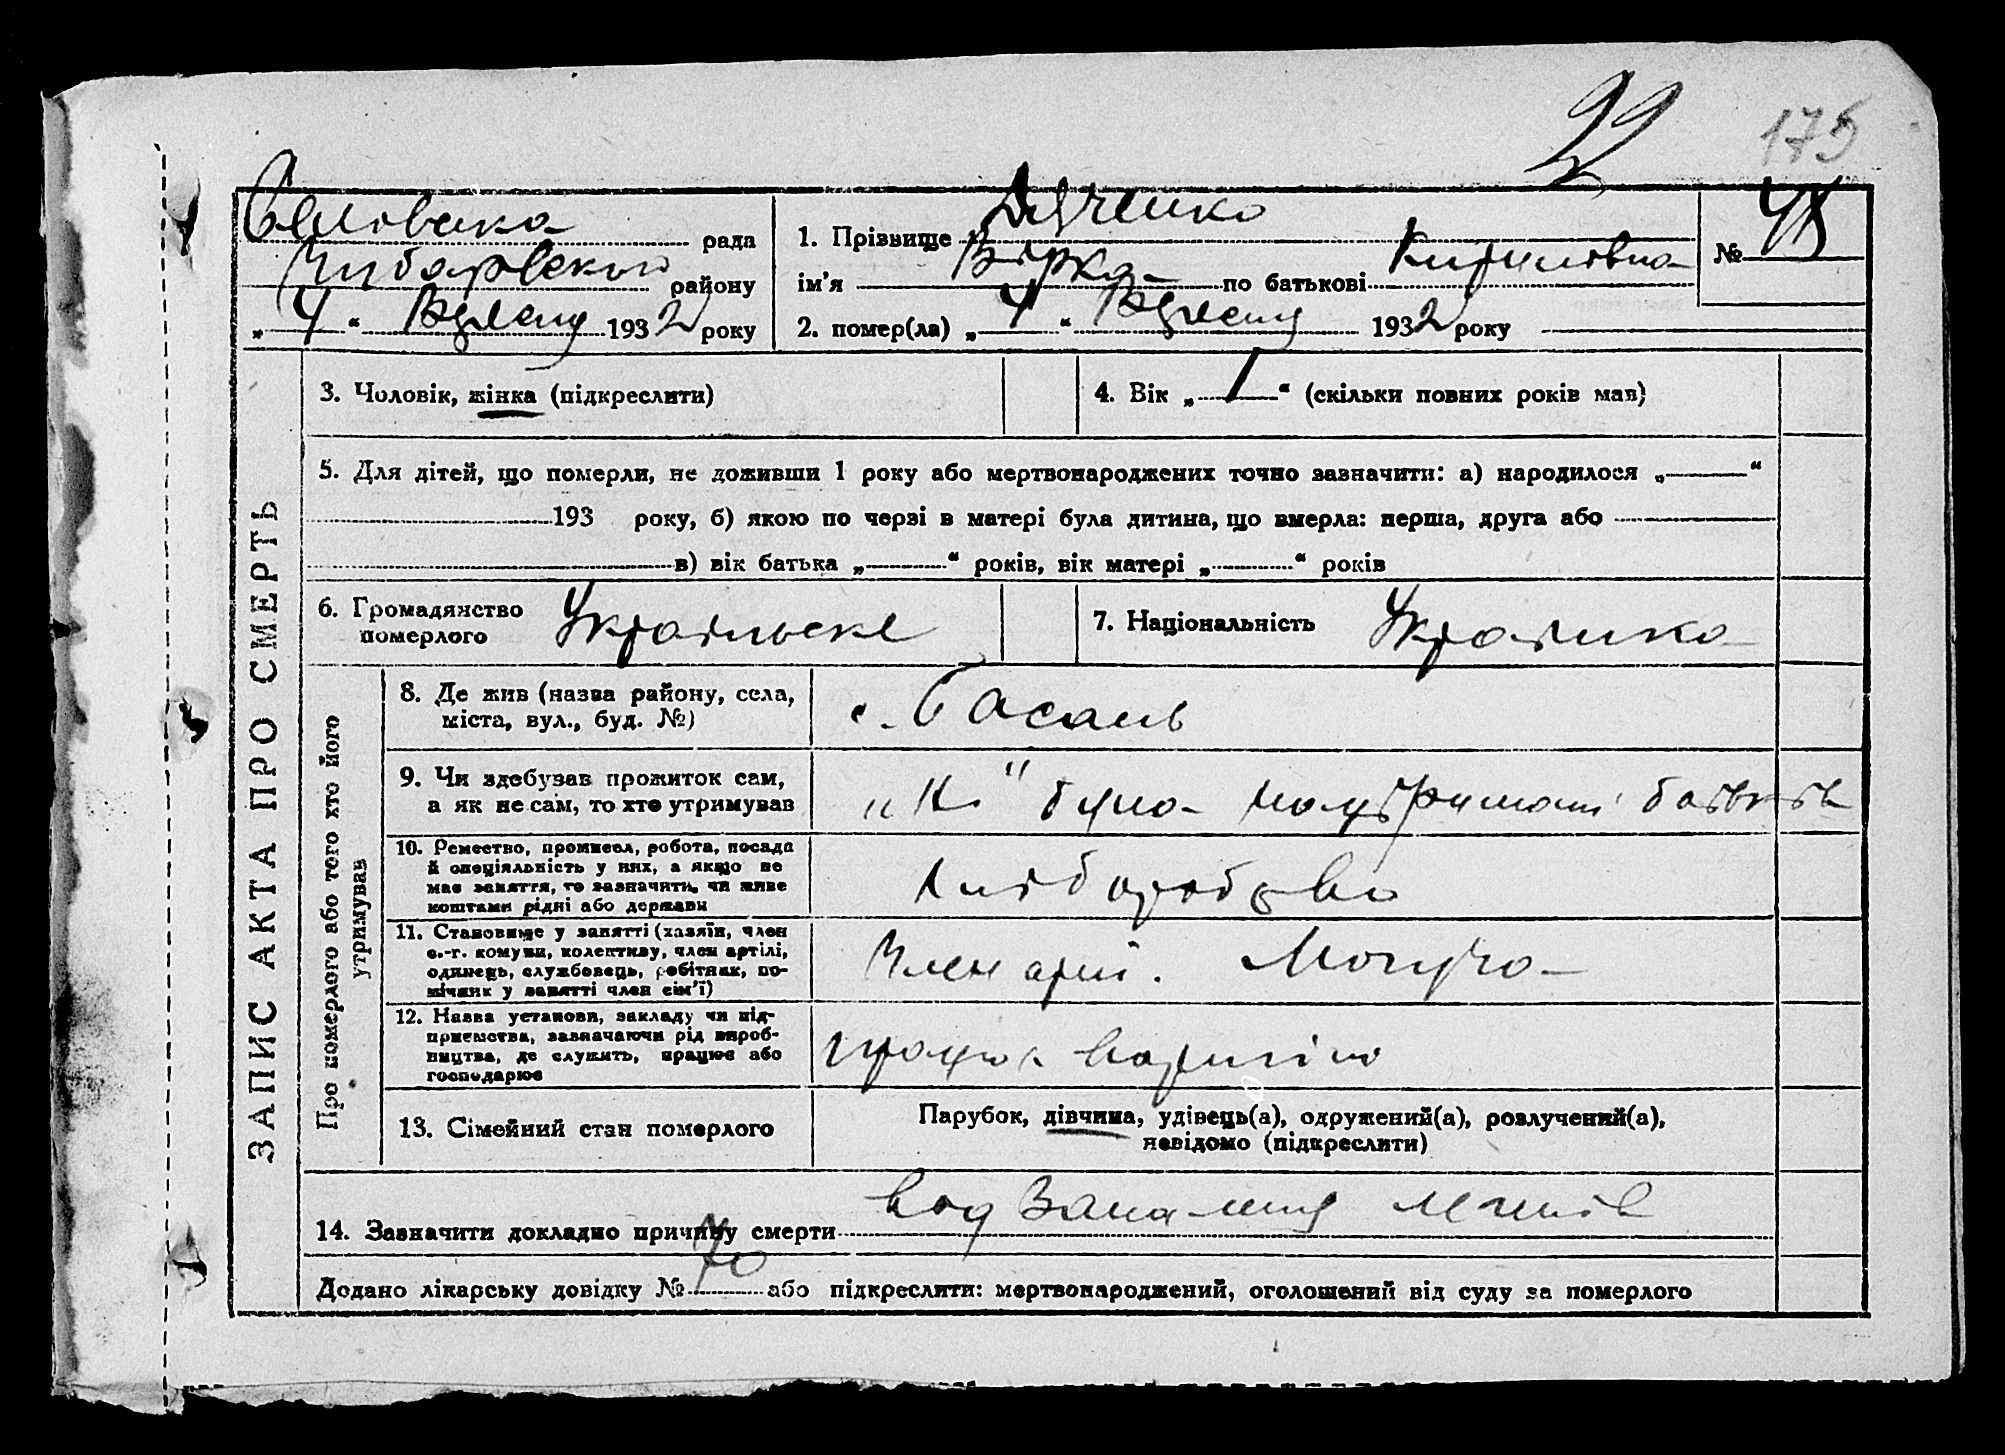 22 175
рада
району
„ 4 “ 1932 року
1. Прізвище Дяченко
ім'я Вірка по батькові Кириловна
№ 48
2. помер(ла) „ 4 “ 1932 року
ЗАПИС АКТА ПРО СМЕРТЬ
3. Чоловік, жінка (підкреслити)
4. Вік „ 1 “ (скільки повних років мав)
5. Для дітей, що померли, не доживши 1 року або мертвонароджених точно зазначити: а) народилося „ “
193 року, б) якою по черзі в матері була дитина, що вмерла: перша, друга або
в) вік батька „ “ років, вік матері „ “ років
6. Громадянство
померлого
Українське
7. Національність Українка
Про померлого або того кто його
утримував
8. Де жив (назва району, села,
міста, вул., буд. №)
с. Басань
9. Чи здобував прожиток сам,
а як не сам, то хто утримував
„Ні“ була на утриманні батьків
10. Ремество, промисел, робота, посада
й спеціяльність у них, а якщо не
має заняття, то зазначити, чи живе
коштами рідні або держави
Хліборобство
11. Становище у занятті (хазяїн, член
с.-г. комуни, колективу, член артілі,
одинець, службовець, робітник, по-
мічник у занятті член сім'ї)
Член артілі.
12. Назва установи, закладу чи під-
приємства, зазначаючи рід вироб-
ництва, де служить, працює або
господарює
працює в артілі
13. Сімейний стан померлого
Парубок, дівчина, удівець(а), одружений(а), розлучений(а),
невідомо (підкреслити)
14. Зазначити докладно причину смерти
Додано лікарську довідку № 70 або підкреслити: мертвонароджений, оголошений від суду за померлого